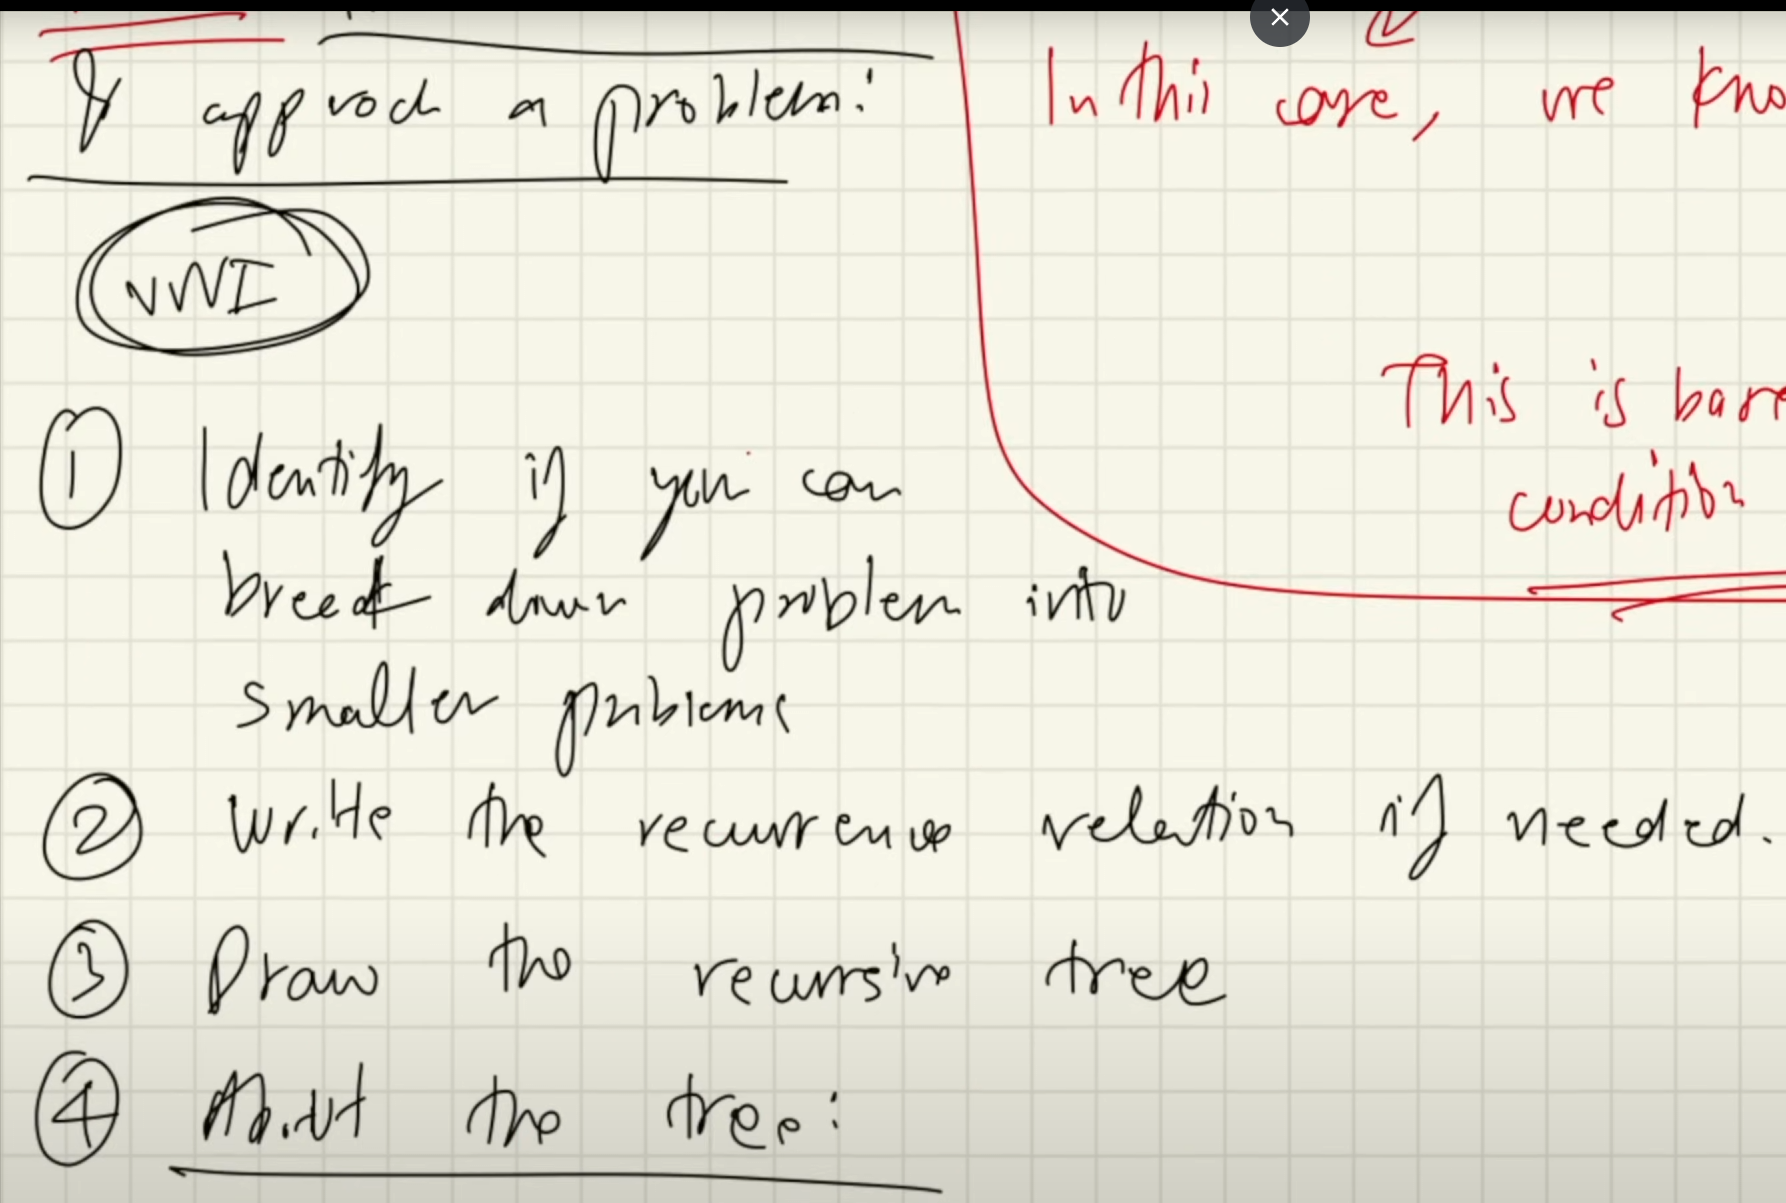 & approach a problem:
VVVI
① Identify if you can
break down problem into
smaller problems
② Write the recurrence relation if needed.
③ Draw the recursive tree
④ About the tree:
In this case, we kno
This is base
condition